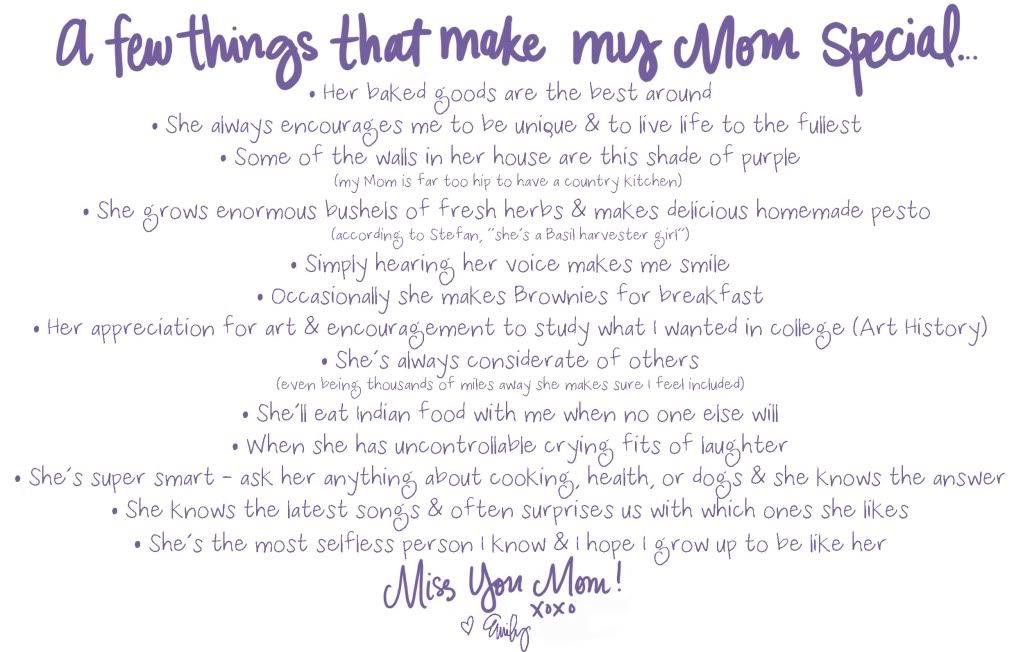 A few things that make my Mom special...
• Her baked goods are the best around
• She always encourages me to be unique & to live life to the fullest
• Some of the walls in her house are this shade of purple
(my Mom is far too hip to have a country kitchen)
• She grows enormous bushels of fresh herbs & makes delicious homemade pesto
(according to Stefan, "she's a Basil harvester girl")
• Simply hearing her voice makes me smile
• Occasionally she makes Brownies for breakfast
• Her appreciation for art & encouragement to study what I wanted in college (Art History)
• She's always considerate of others
(even being thousands of miles away she makes sure I feel included)
• She'll eat Indian food with me when no one else will
• When she has uncontrollable crying fits of laughter
• She's super smart - ask her anything about cooking, health, or dogs & she knows the answer
• She knows the latest songs & often surprises us with which ones she likes
• She's the most selfless person I know & I hope I grow up to be like her
Miss You Mom!
xoxo
♡ Emily